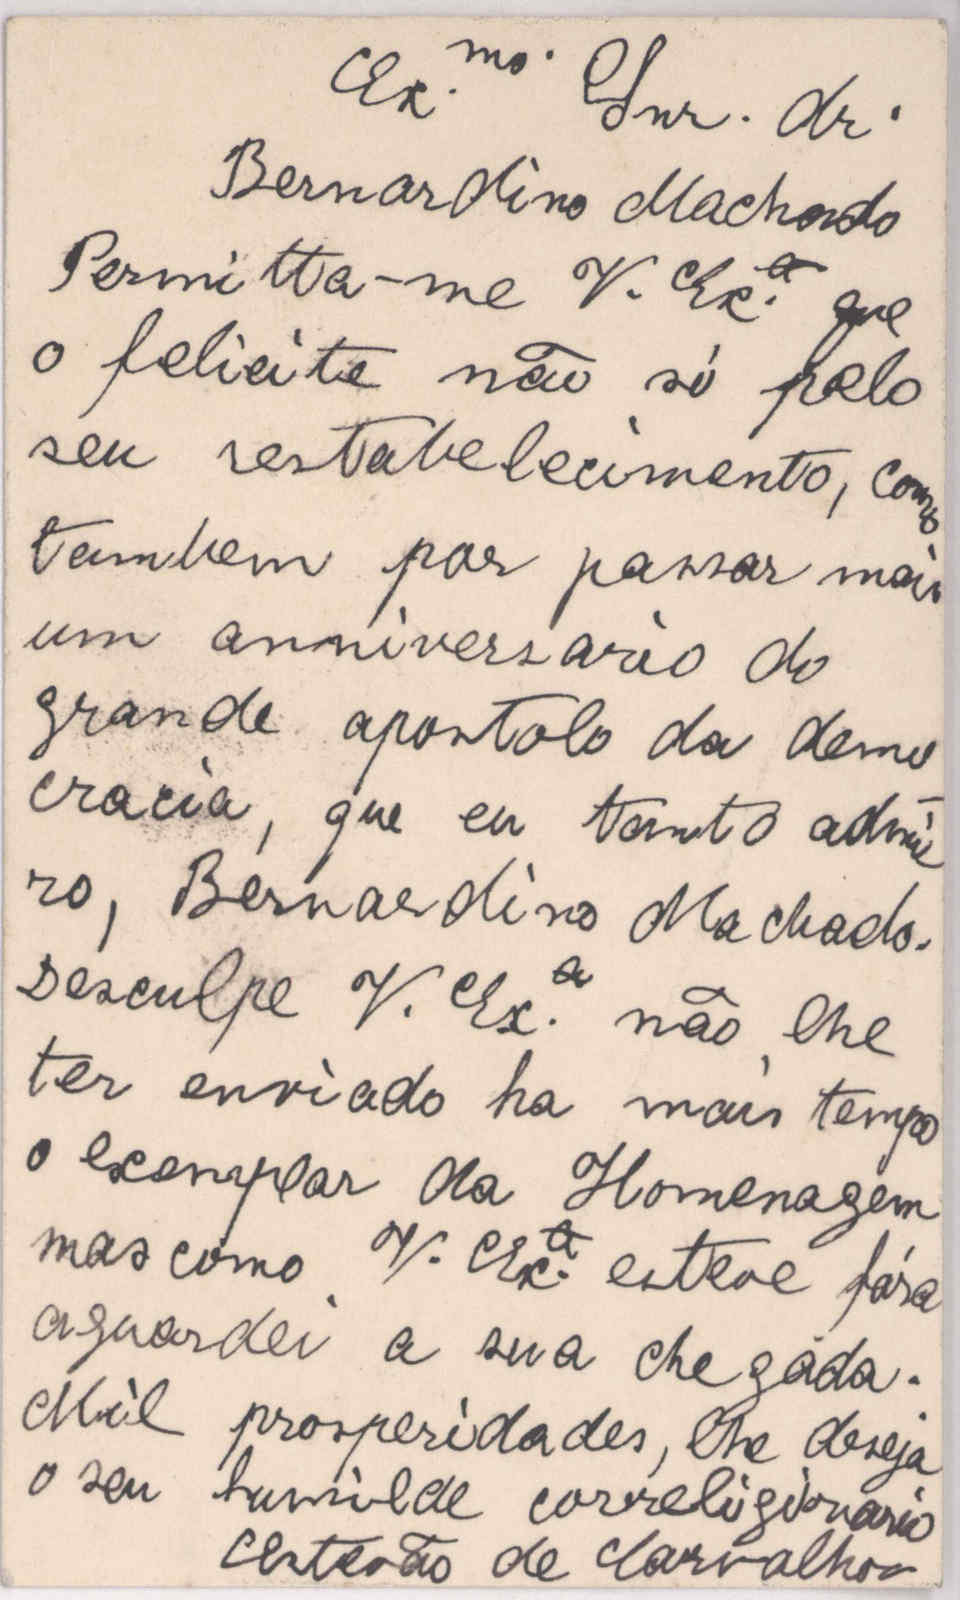 Ex.mo. Snr. dr.
Bernardino Machado
Permitta-me V. Ex.a que
o felicite não só pelo
seu restabelecimento, como
tambem por passar mais
um anniversario do
grande apostolo da demo
cracia, que eu tanto admi
ro, Bernardino Machado.
Desculpe V. Ex.a não lhe
ter enviado ha mais tempo
o exemplar da Homenagem
mas como V. Ex.a esteve fóra
aguardei a sua chegáda.
Mil prosperidades, lhe deseja
o seu humilde correligionario
Estevão de Carvalho